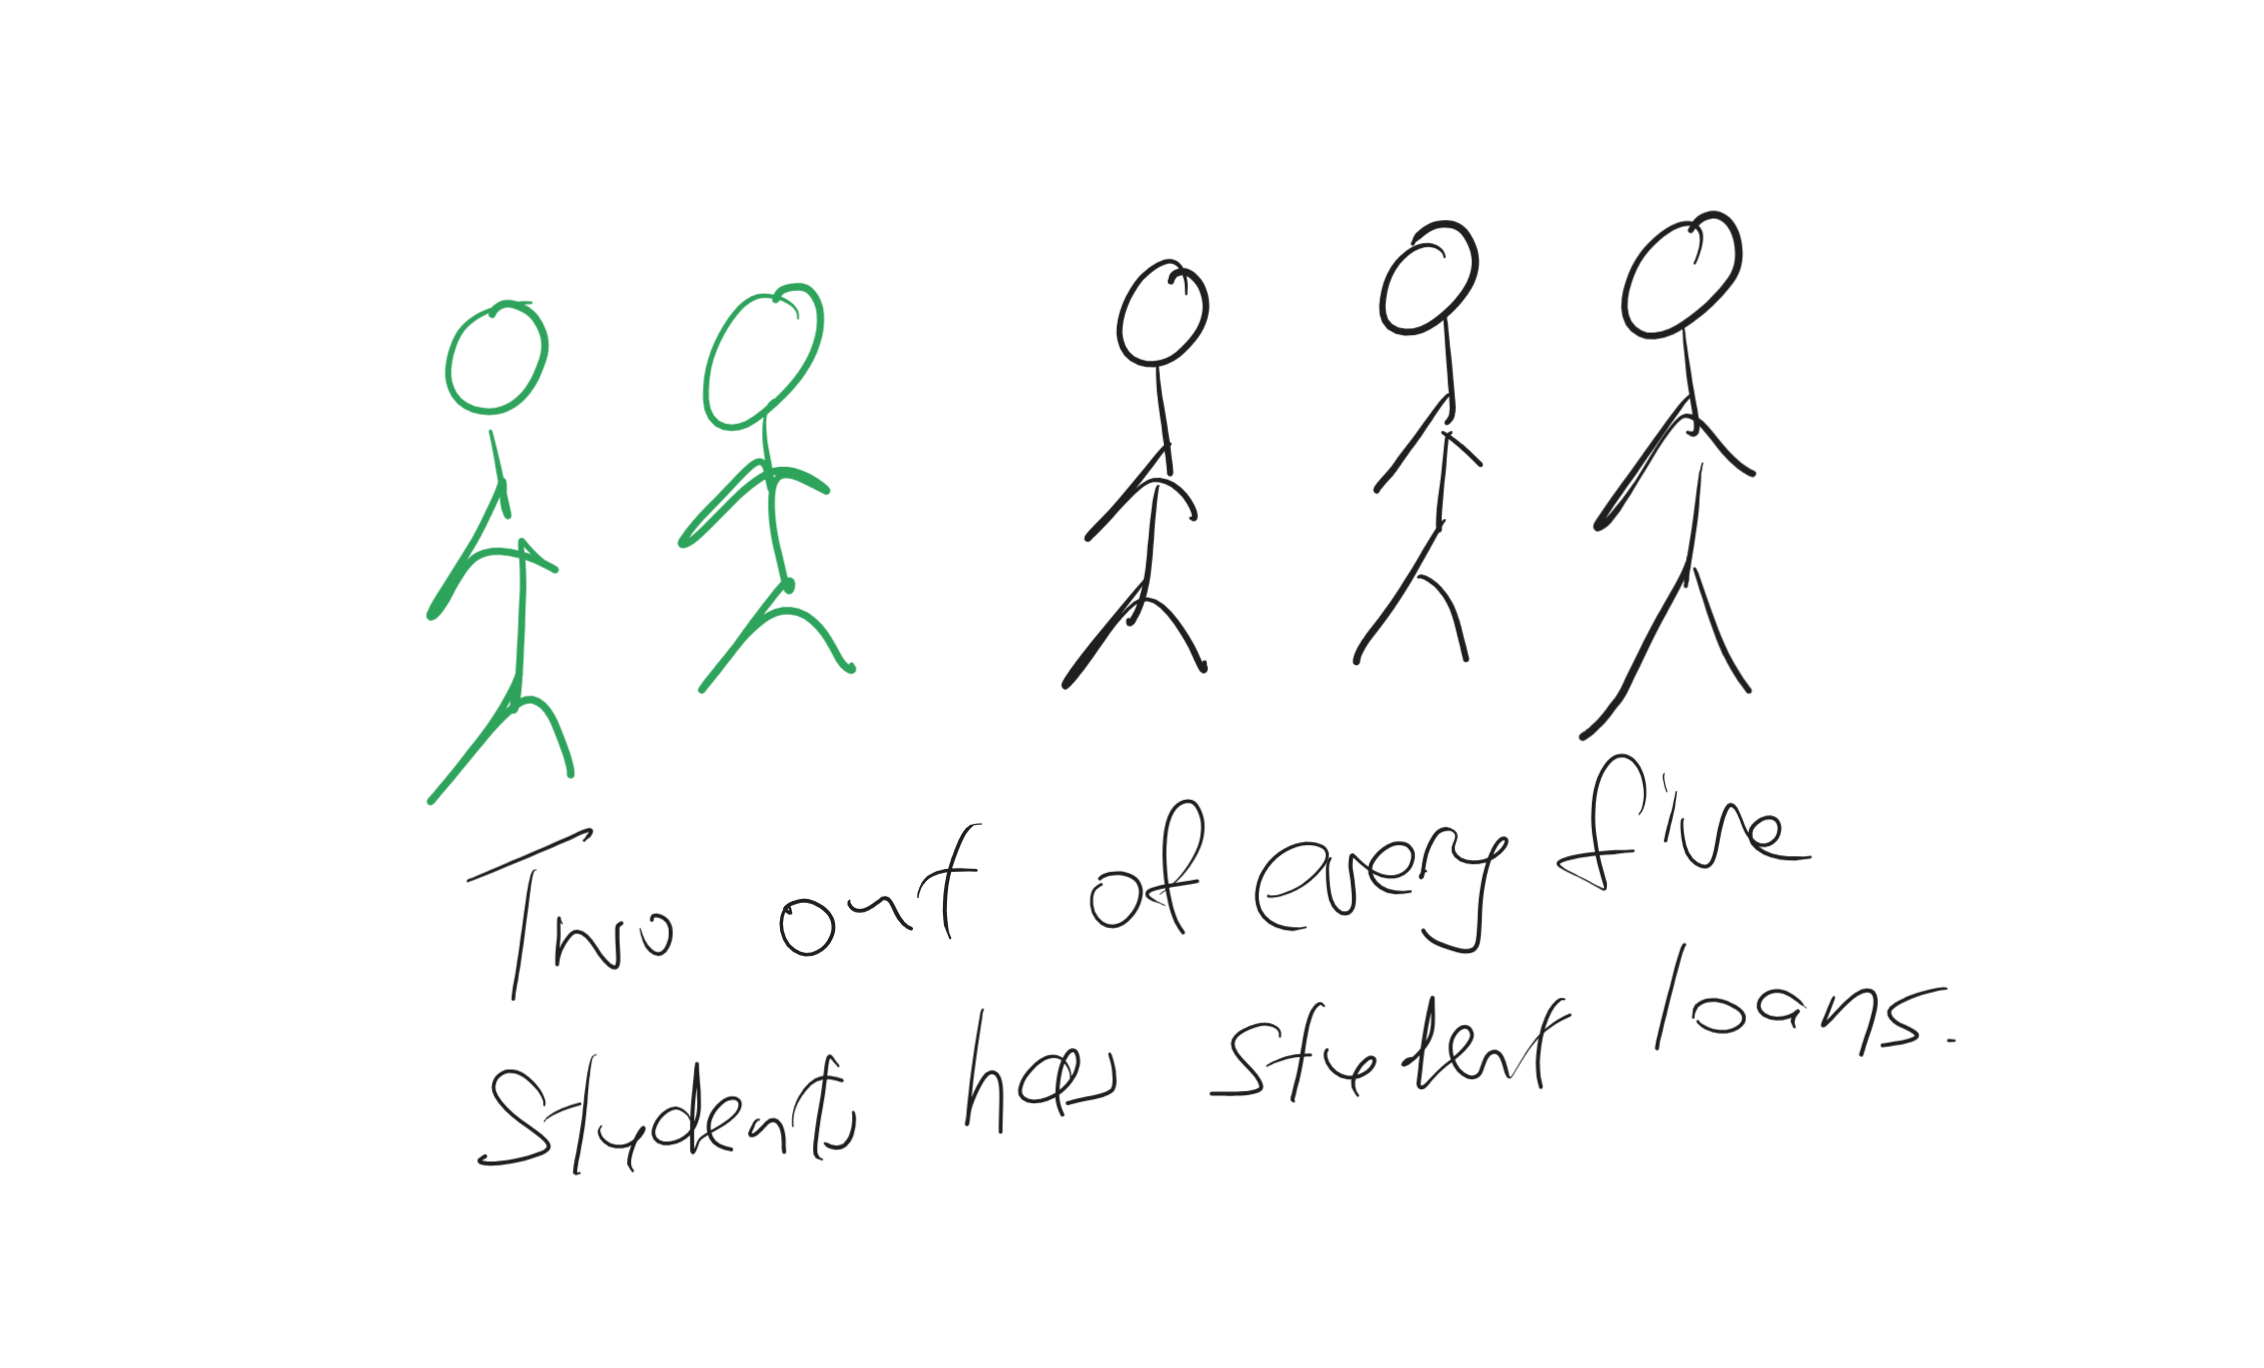 Two out of every five
Students has student loans.